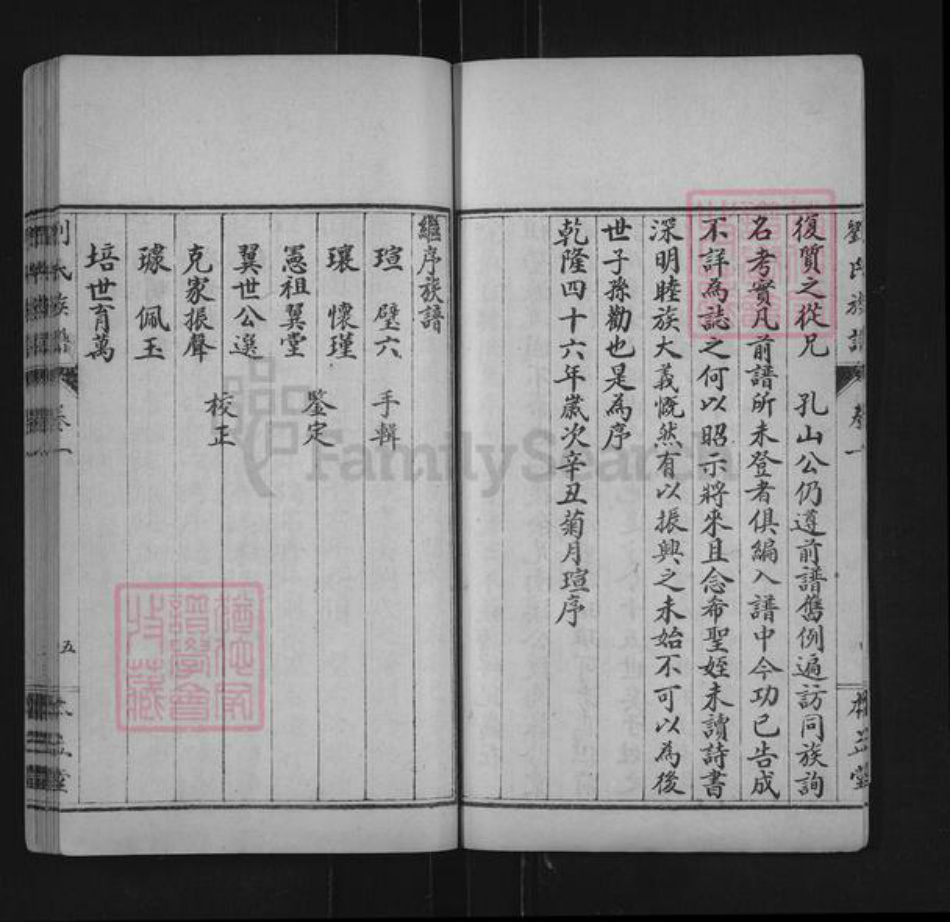 劉氏族譜 卷一
復質之從兄 孔山公仍遵前譜舊例遍訪同族詢
名考實凡前譜所未登者俱編入譜中今功已告成
不詳為誌之何以昭示將來且念希聖姪未讀詩書
深明睦族大義慨然有以振興之未始不可以為後
世子孫勸也是為序
乾隆四十六年歲次辛丑菊月瑄序
繼序族譜
瑄 璧六 手輯
瓌 懷瑾
鑒定
憲祖翼堂
翼世公選
校正
克家振聲
璩 佩玉
培世育萬
劉氏族譜 卷一 五
FamilySearch